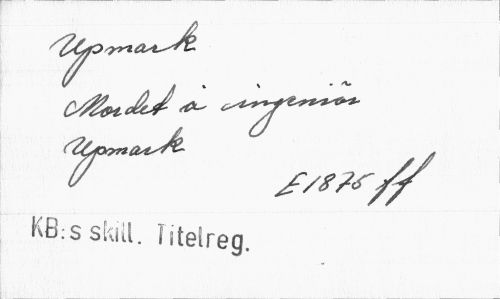 Upmark
Mordet å ingeniör
Upmark
E 1875 ff
KB:s skill. Titelreg.